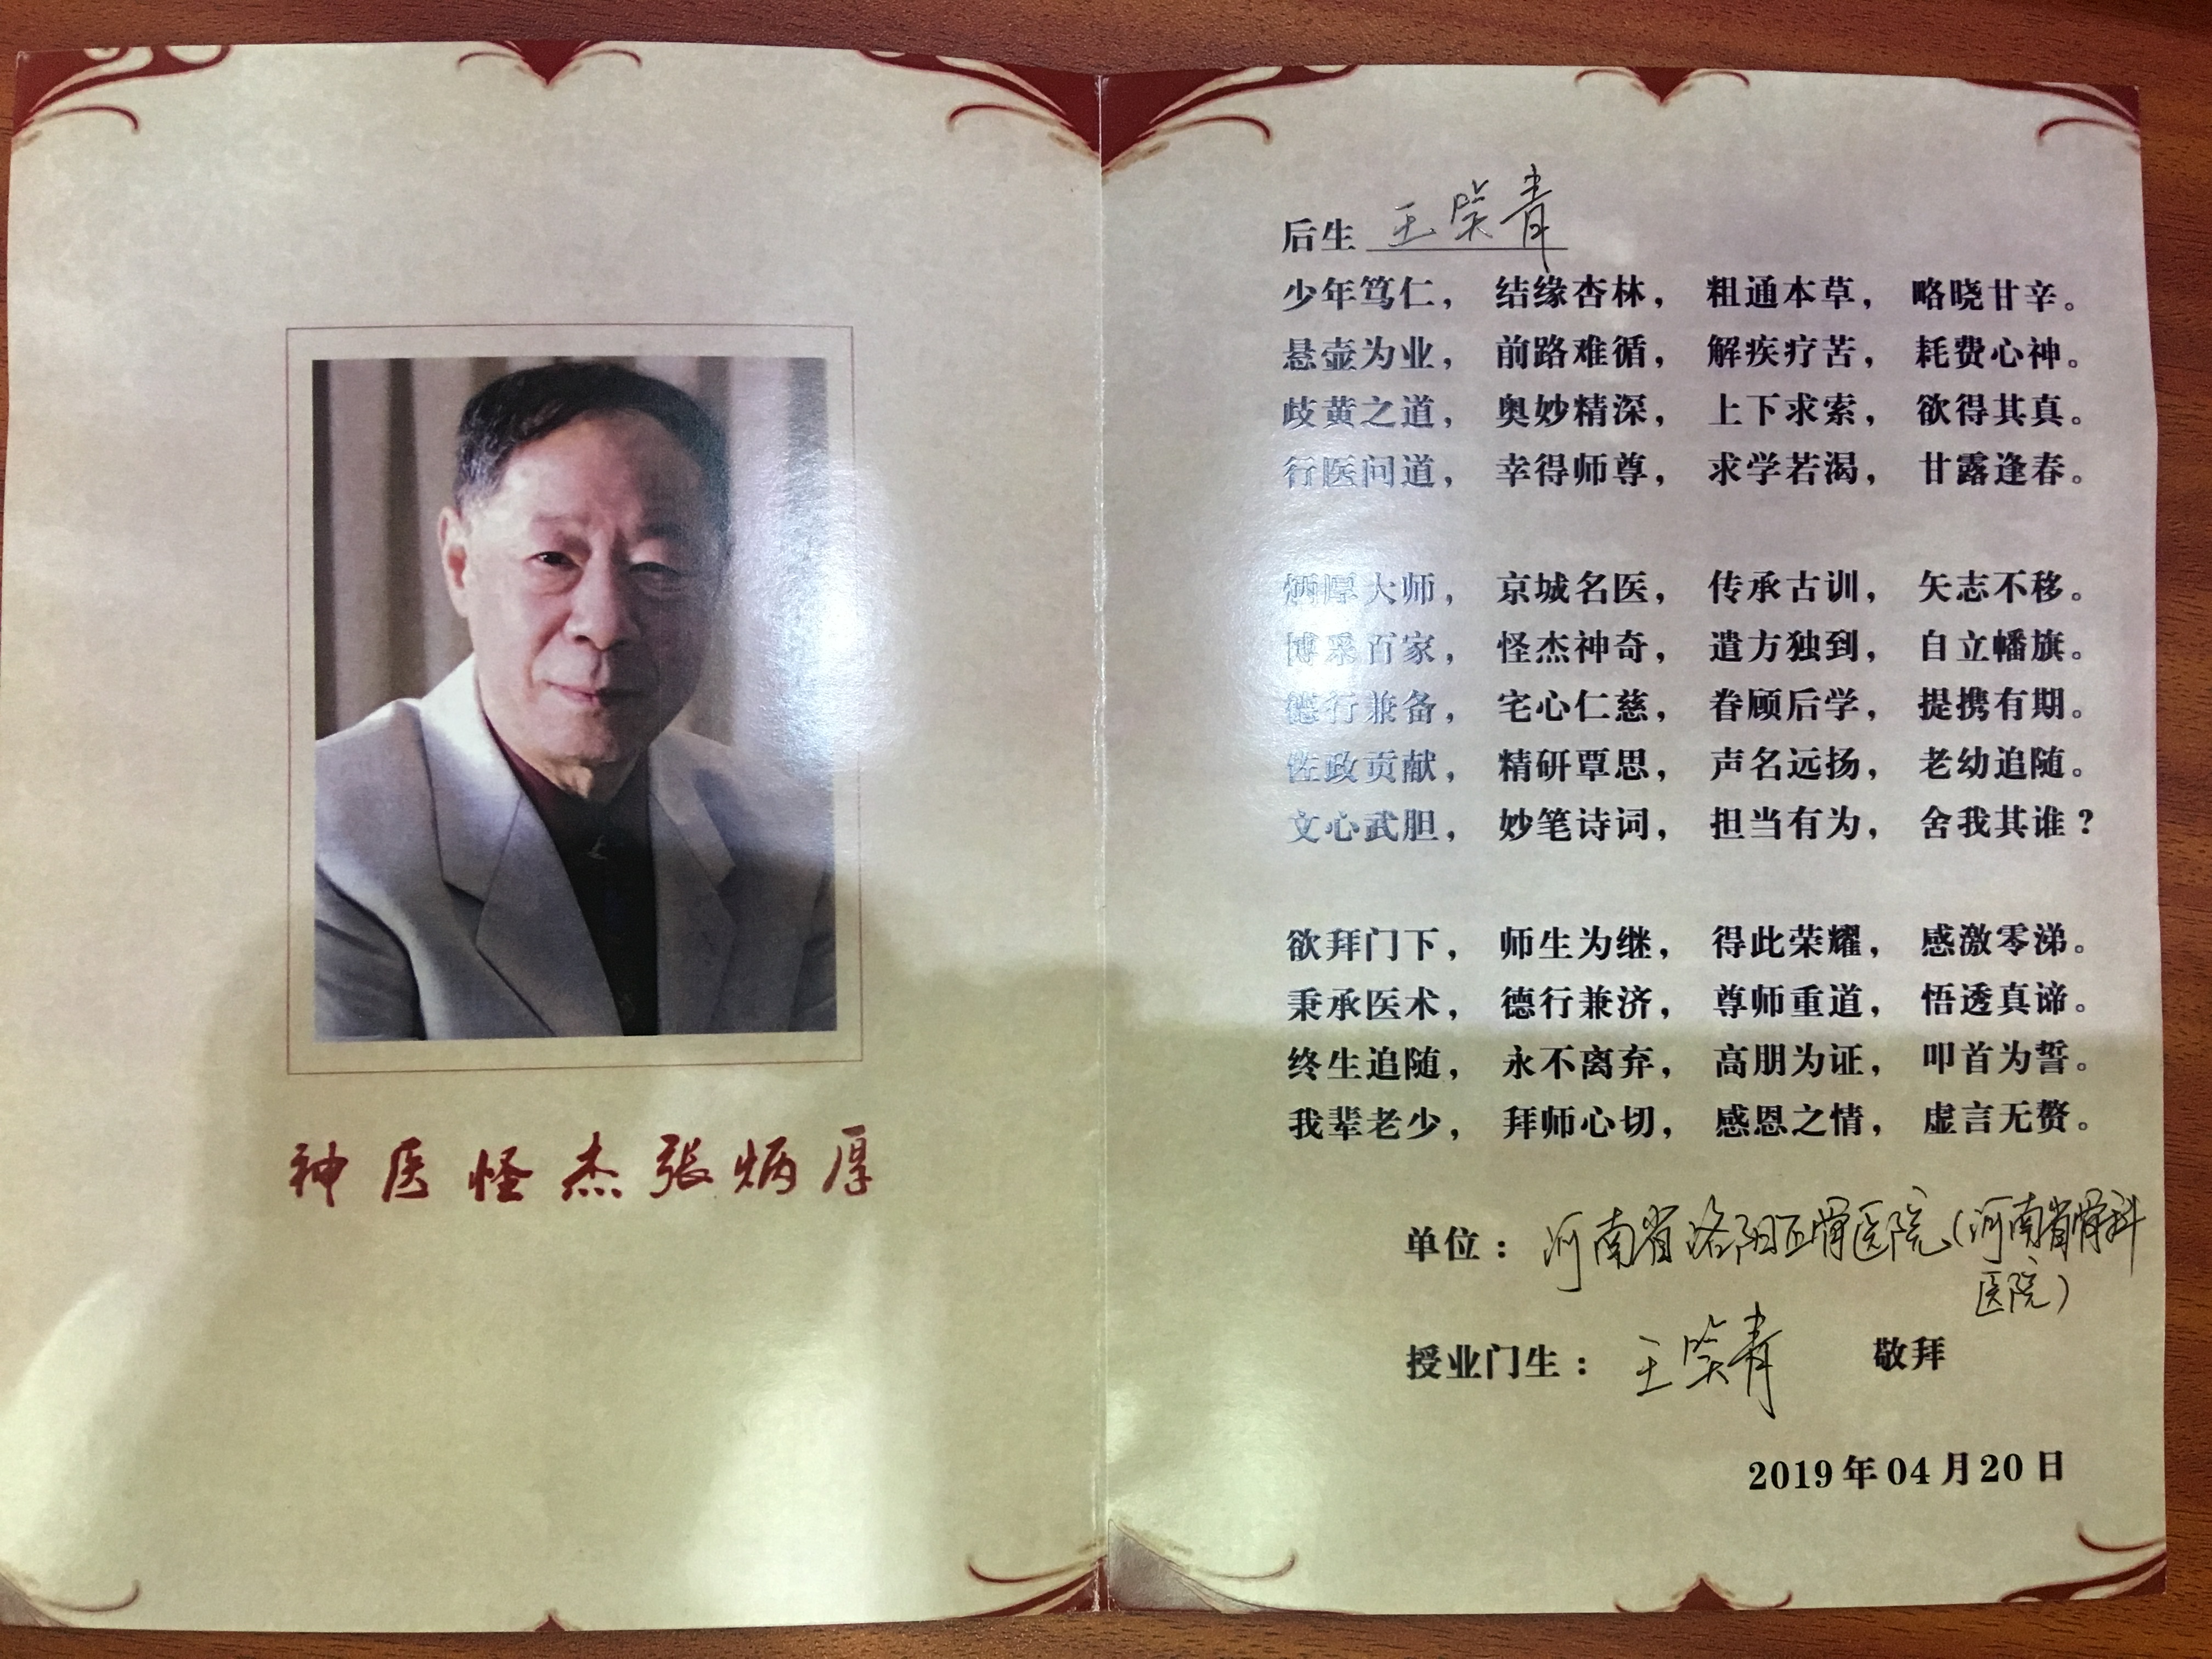 神医怪杰张炳厚
后生 王笑青
少年笃仁， 结缘杏林， 粗通本草， 略晓甘辛。
悬壶为业， 前路难循， 解疾疗苦， 耗费心神。
歧黄之道， 奥妙精深， 上下求索， 欲得其真。
行医问道， 幸得师尊， 求学若渴， 甘露逢春。
炳厚大师， 京城名医， 传承古训， 矢志不移。
博采百家， 怪杰神奇， 遣方独到， 自立幡旗。
德行兼备， 宅心仁慈， 眷顾后学， 提携有期。
佐政贡献， 精研覃思， 声名远扬， 老幼追随。
文心武胆， 妙笔诗词， 担当有为， 舍我其谁？
欲拜门下， 师生为继， 得此荣耀， 感激零涕。
秉承医术， 德行兼济， 尊师重道， 悟透真谛。
终生追随， 永不离弃， 高朋为证， 叩首为誓。
我辈老少， 拜师心切， 感恩之情， 虚言无赘。
单位：河南省洛阳正骨医院（河南省骨科
医院）
授业门生：王笑青 敬拜
2019年04月20日